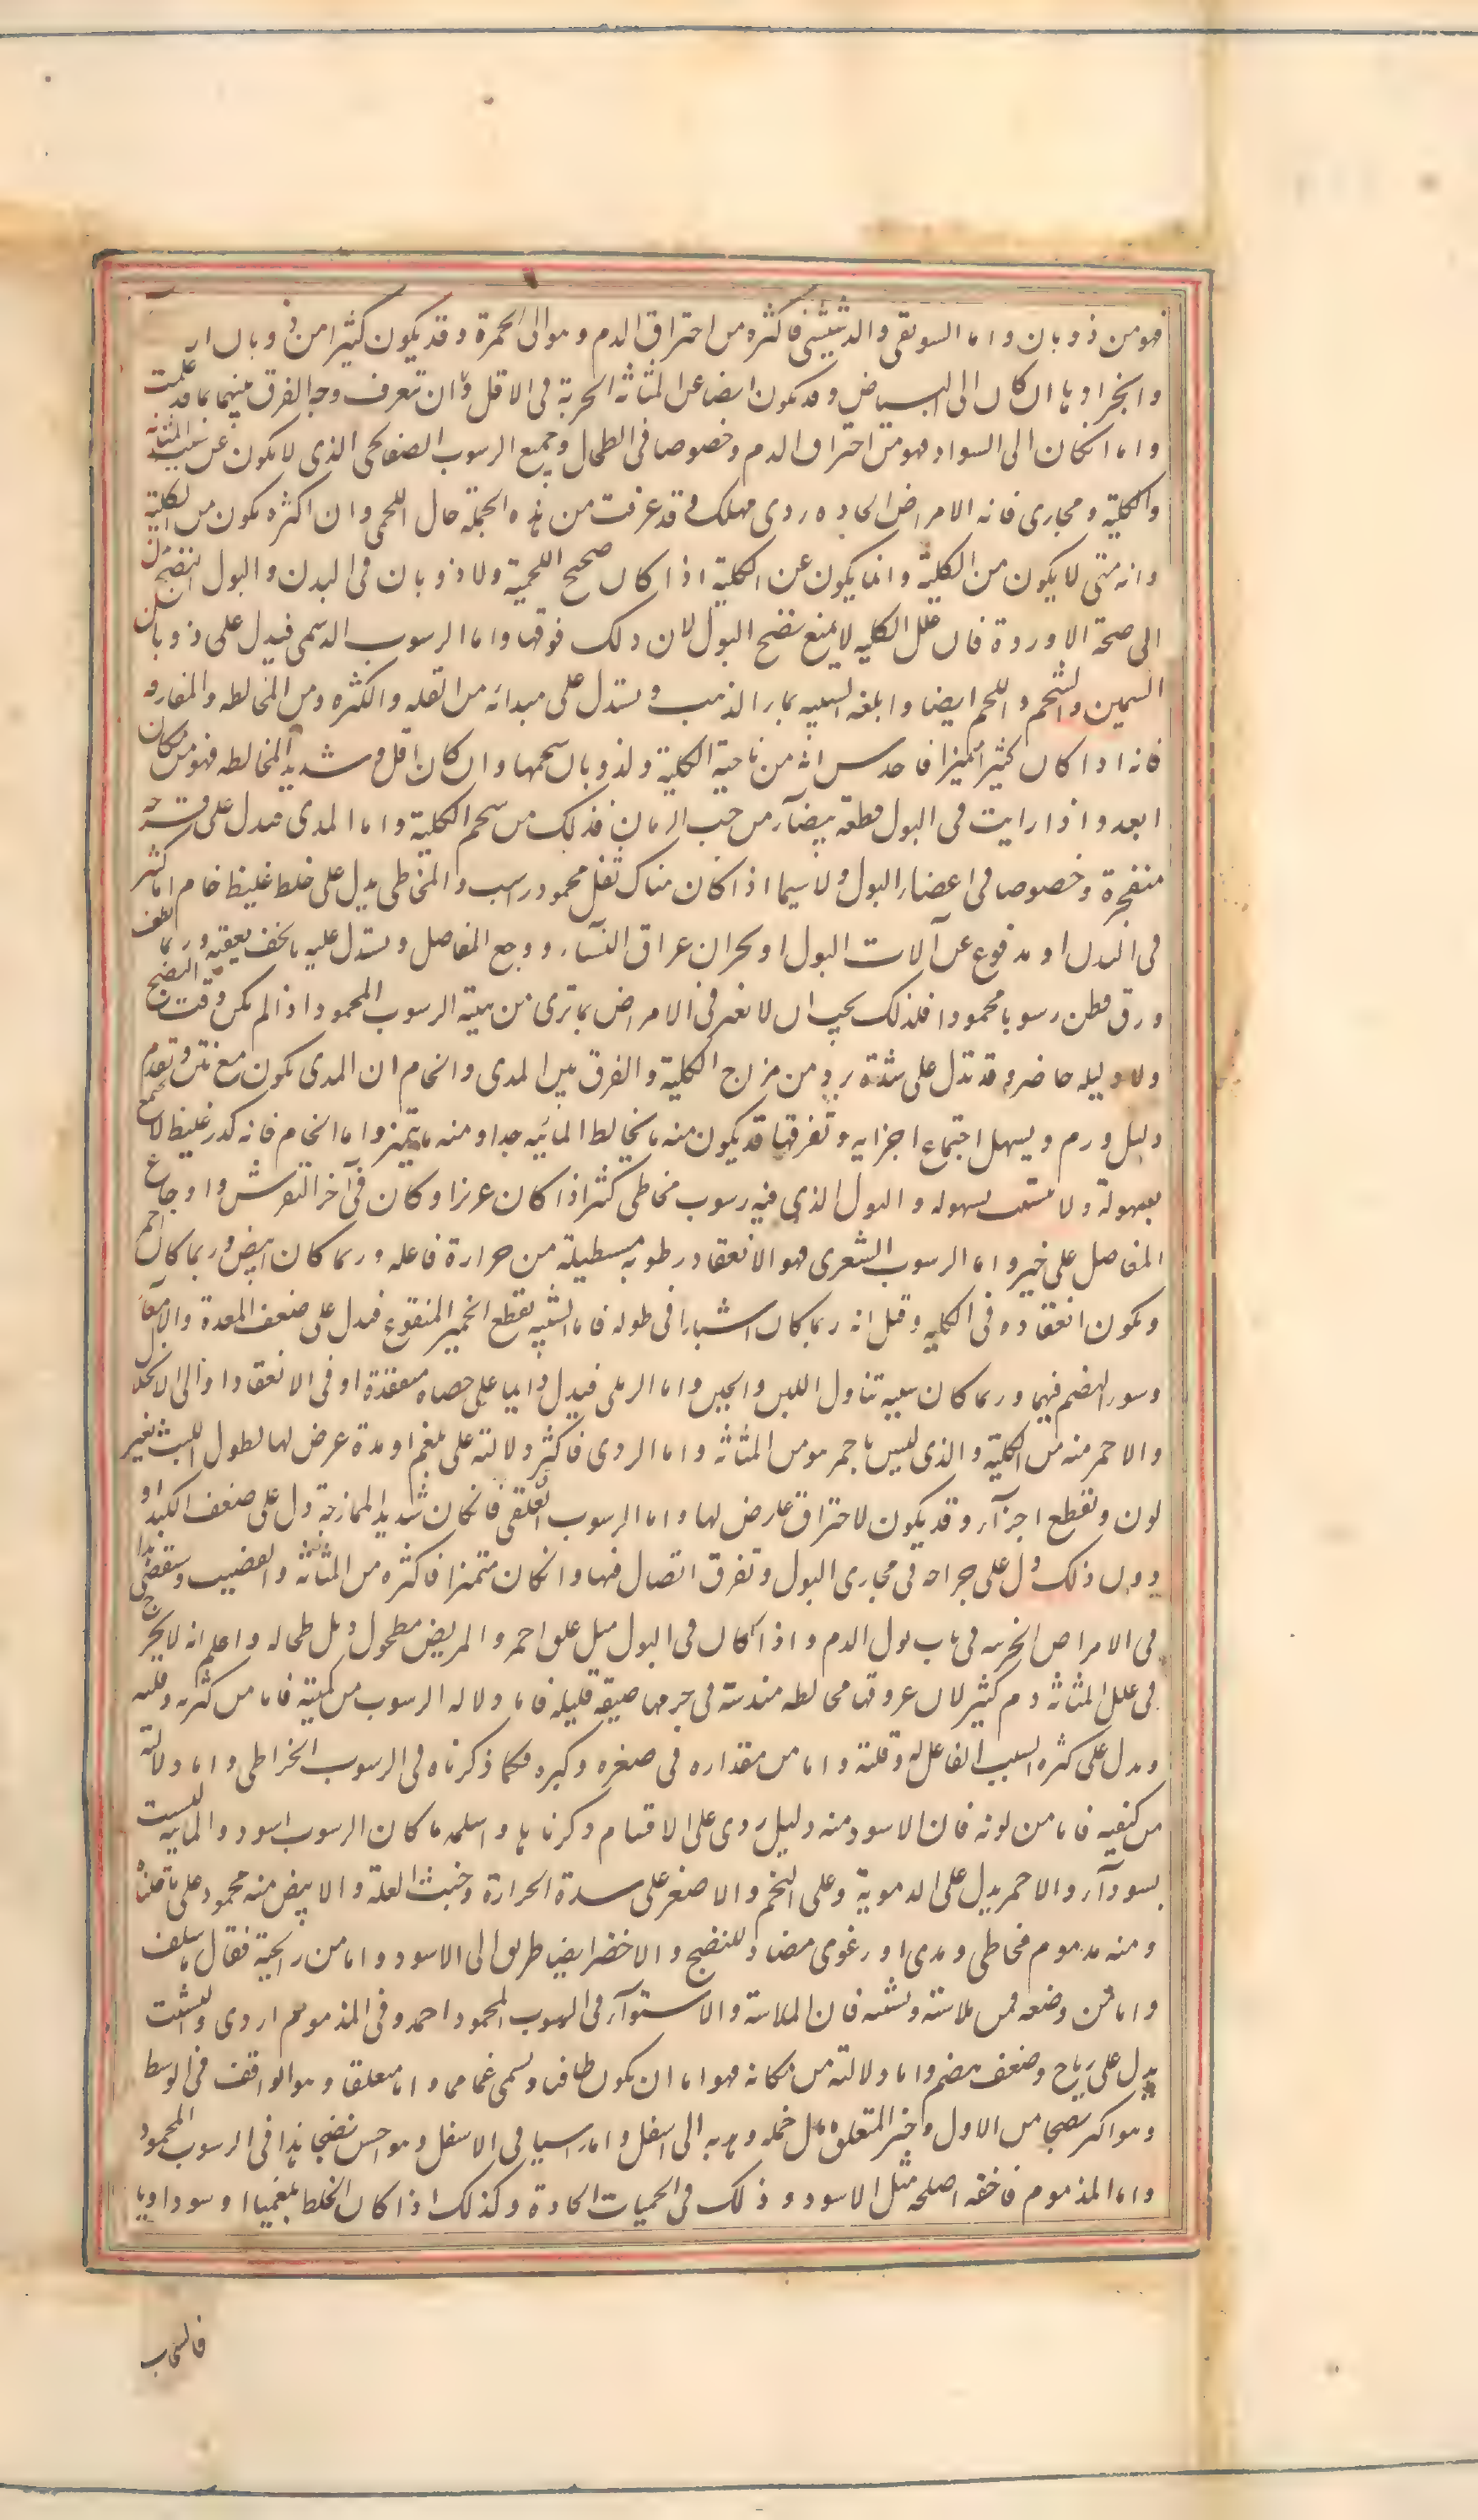 فهو من ذوبان واما السويقى والدشيشى فاكثره من احتراق الدم وهو الى الحمرة وقد يكون كثيرا من ذوبان
وانجرادها ان كان الى البياض وقد يكون ايضا عن المثانة الجربة فى الاقل وان تعرف وجه الفرق بينهما بما قد علمت
واما انكان الى السواد فهو من احتراق الدم وخصوصا فى الطحال وجميع الرسوب الصفائحى الذى لا يكون عن سبب المثانة
والكلية ومجارى فانه الامراض الحادة ردى مهلك وقد عرفت من هذه الجملة حال اللحمى وان اكثره يكون من الكلية
وانه متى لا يكون من الكلية وانما يكون عن الكلية اذا كان صحيح اللحمية ولا ذوبان فى البدن والبول النضج
الى صحة الاوردة فان علل الكلية لا يمنع نضج البول لان ذلك فوقها واما الرسوب الدسمى فيدل على ذوبان
السمين والشحم واللحم ايضا وابلغه الشبيه بماء الذهب ويستدل على مبدائه من القلة والكثرة ومن المخالطه والمفارقة
فانه اذا كان كثيرا متميزا فاحدس انه من ناحية الكلية ولذوبان شحمها وان كان اقل وشديد المخالطه فهو من مكان
ابعد واذا رايت فى البول قطعة بيضآء من حب الرمان فذلك من شحم الكلية واما المدى فيدل على قرحة
منفجرة وخصوصا فى اعضاء البول ولا سيما اذا كان هناك ثفل محمود راسب والمخاطى يدل على خلط غليظ خام اما كثير
فى البدن او مدفوع عن آلات البول او بحران عراق النسآء ووجع المفاصل ويستدل عليه بالخف يعقبه وربما لطف
ورق فظن رسوبا محمودا فلذلك يجب ان لا تغتر فى الامراض بما ترى من هيئة الرسوب المحمود اذا لم يكن وقت النضج
ولا دليله حاضر وقد تدل على شدة برد من مزاج الكلية والفرق بين المدى والخام ان المدى يكون مع نتن وتقدم
دليل ورم ويسهل اجتماع اجزايه وتفرقها قد يكون منه ما يخالط المائية جدا ومنه ما يتميز واما الخام فانه كدر غليظ لا يجتمع
بسهولة ولا يتشتت بسهوله والبول الذى فيه رسوب مخاطى كثر اذا كان غزيرا وكان فى آخر النقرس واوجاع
المفاصل على خير واما الرسوب الشعرى فهو الانعقاد رطوبه مستطيلة من حرارة فاعله وربما كان ابيض وربما كان احمر
ويكون انعقاده فى الكليه وقيل انه ربما كان اشبارا فى طوله فاما الشبيه بقطع الخمير المنقوع فيدل على ضعف المعدة والامعآء
وسوء الهضم فيهما وربما كان سببه تناول اللبن والجبن واما الرملى فيدل دايما على حصاة منعقدة او فى الانعقاد او الى الانحلال
والاحمر منه من الكلية والذى ليس باحمر هو من المثانة واما الرمادى فاكثر دلالته على بلغم او مدة عرض لها لطول اللبث تغير
لون وتقطع اجزآء وقد يكون لاحتراق عارض لها واما الرسوب العلقى فانكان شديد الممازجة دل على ضعف الكبد او
دون ذلك دل على جراحة فى مجارى البول وتفرق اتصال فيها وانكان متميزا فاكثره من المثانة والقضيب وستقصى هذا
فى الامراض الجزئيه فى باب بول الدم واذا كان فى البول مثل علق احمر والمريض مطحول ذبل طحاله واعلم انه لا يخرج
فى علل المثانة دم كثير لان عروقها مخالطه مندسة فى جرمها ضيقة قليله فاما دلاله الرسوب من كميته فاما من كثرته وقلته
ويدل على كثرة السبب الفاعل له وقلته واما من مقداره فى صغره وكبره فكما ذكرناه فى الرسوب الخراطى واما دلالته
من كيفيه فاما من لونه فان الاسود منه دليل ردى على الاقسام ذكرناها واسلمه ما كان الرسوب اسود والمائيه ليست
بسودآء والاحمر يدل على الدموية وعلى التخم والاصفر على شدة الحرارة وخبث العلة والابيض منه محمود على ما قلناه
ومنه مذموم مخاطى ومدى او رغوى مضاد للنضج والاخضر ايضا طريق الى الاسود واما من رايحة فقال ما سلف
واما من وضعه فمن ملاسته وتشتته فان الملاسة والاستوآء فى الرسوب المحمود احمد وفى المذموم اردى والتشتت
يدل على رياح وضعف هضم واما دلالته من مكانه فهو اما ان يكون طافيا ويسمى غماما واما معلقا وهو الواقف فى الوسط
وهو اكثر نضجا من الاول وخير المتعلق ما مال خمله وهدبه الى اسفل واما راسبا فى الاسفل وهو احسن نضجا هذا فى الرسوب المحمود
واما المذموم فاخفه اصلحه مثل الاسود وذلك فى الحميات الحادة وكذلك اذا كان الخلط بلغميا او سوداويا
فالسحاب